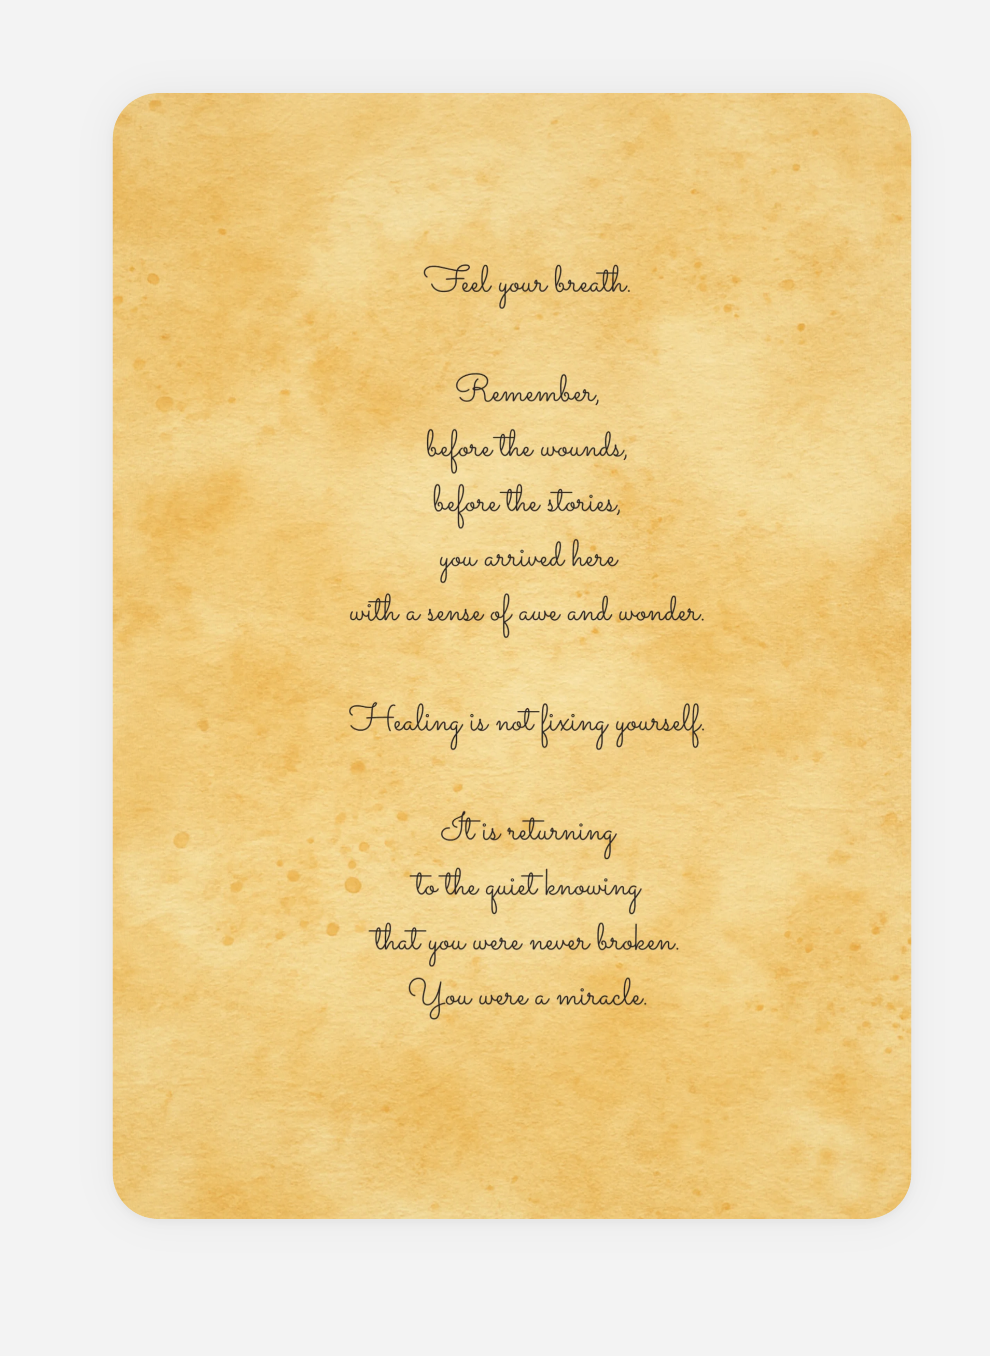 Feel your breath.
Remember,
before the wounds,
before the stories,
you arrived here
with a sense of awe and wonder.
Healing is not fixing yourself.
It is returning
to the quiet knowing
that you were never broken.
You were a miracle.